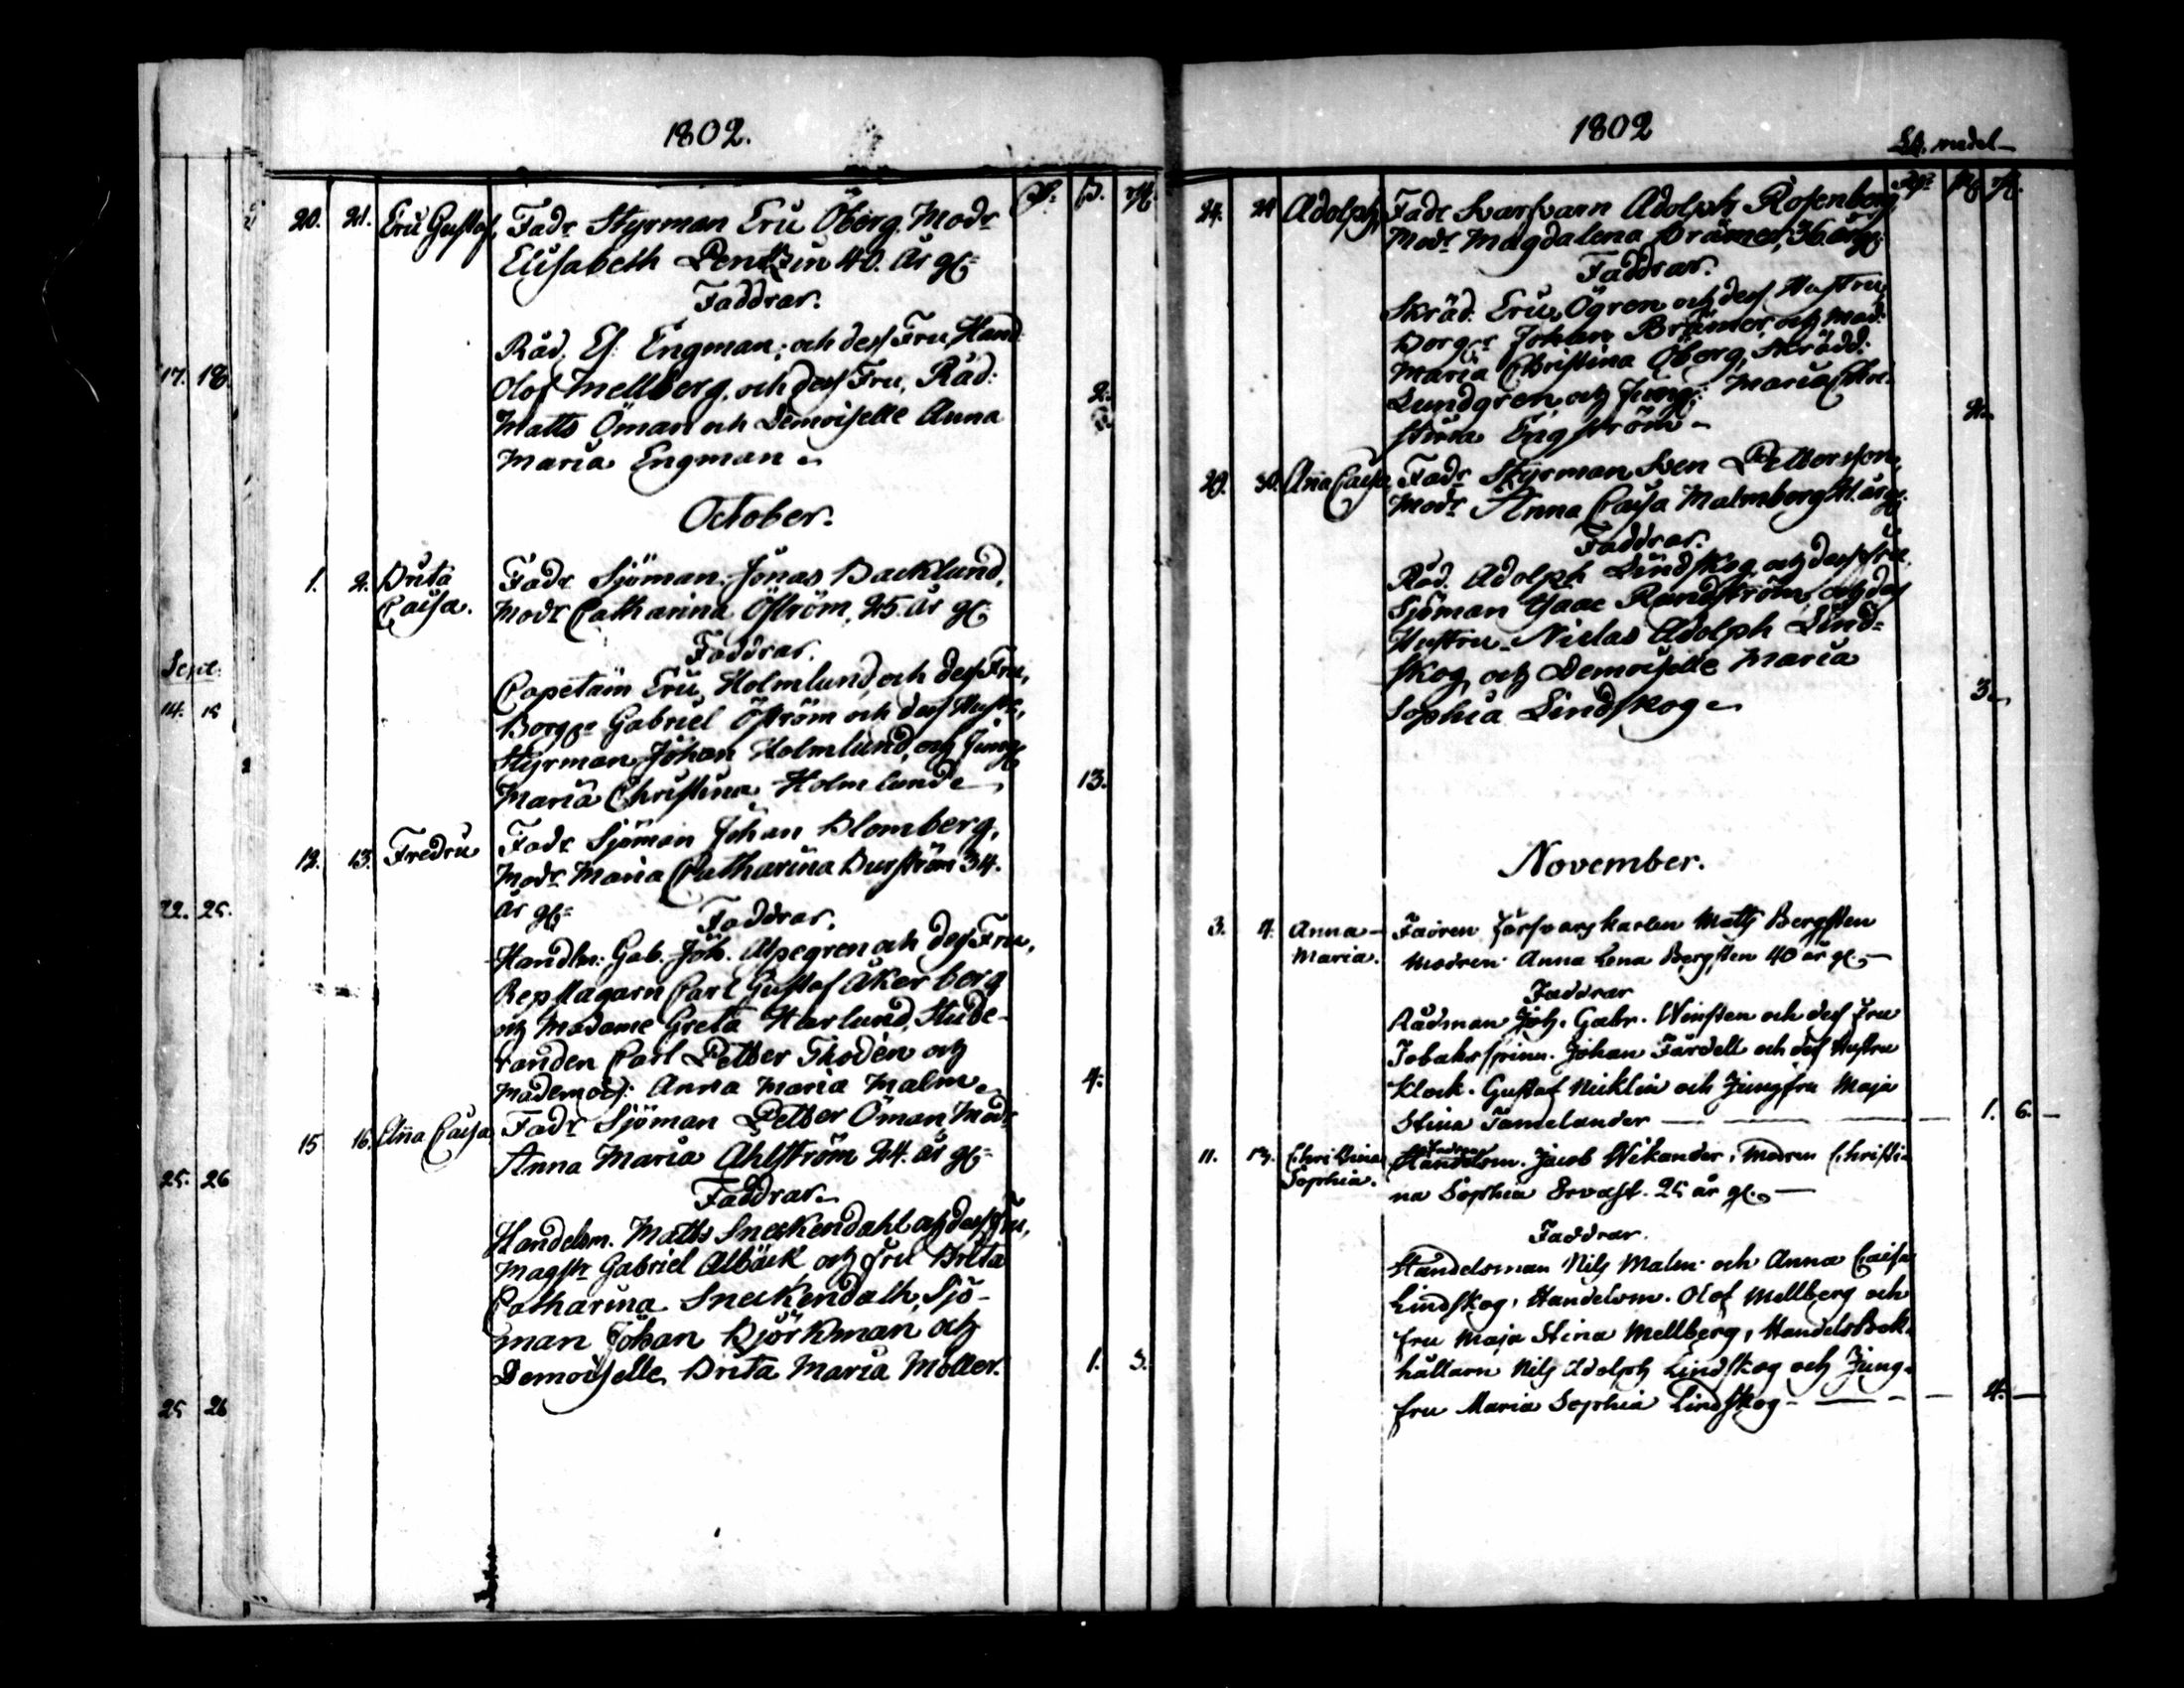 1802.
20. 21. Eric Gustaf, Fadr Styrman Eric Öberg. Modr
Elisabeth Pentzin 40. år gl:
Faddrar.
Råd. Es. Engman, och dess Fru, Hand:
Olof Mellberg, och dess Fru, Råd:
Matts Öman och Demoiselle Anna 2.
Maria Engman
October.
1. 2. Brita Fadr Sjöman Jonas Backlund,
Caisa. Modr Catharina Öström, 25. år gl:
Faddrar.
Capetain Eric Holmlund och dess Fru,
Borg: Gabriel Öström och dess Hustr,
Styrman Johan Holmlund, och Jungf
Maria Christina Holmlund 13.
12. 13. Fredric Fadr Sjöman Johan Blomberg,
Modr Maria Catharina Burström 34.
år gl:
Faddrar.
Handln: Gab. Joh. Alpegren och dess Fru,
Repslagarn Carl Gustaf Åkerberg
och Madame Greta Harlund, Stude-
randen Carl Petter Thodén och
Mademois: Anna Maria Malm 4.
15 16. Aña Caisa Fadr Sjöman Petter Öman Modr
Anna Maria Åhlström 24. år gl:
Faddrar.
Handelsm. Matts Sneckendahl och dess Fru,
Magstr Gabriel Albäck och Fru Brita
Catharina Sneckendalh, Sjö-
man Johan Björkman och
Demoiselle, Brita Maria Möller. 1. 3.
17. 18.
Sept.
14. 15
22. 25.
25. 26
25 26
1802
medel
24. 24 Adolph, Fadr Svarfvarn Adolph Rosenberg,
Modr Magdalena Brämer, 36. år gl:
Faddrar.
Skräd. Eric Ögren och dess Hustru,
Borg: Johan Brämer och Mad:
Maria Christina Öberg, Skrädd:
Lundgren och Jungf: Maria Chri-
stina Engström 2.
29. 30. Aña Caisa Fadr Styrman Sven Pettersson,
Modr Anna Caisa Malmberg 21. år gl:
Faddrar.
Råd. Adolph Lindskog och dess Fru,
Sjöman Isaac Randström, och dess
Hustru, Niclas Adolph Lind-
skog, och Demoiselle Maria
Sophia Lindskog 3.
November.
3. 4. Anna Fadren Försvarskarlen Matts Bergsten
Maria. Modren Anna Lena Bergsten 40 år gl.
Faddrar
Rådman Joh. Gabr. Winsten och dess Fru
Tobaksspinn. Johan Färdell och dess Hustru
Klock. Gustaf Nicklin och Jungfru Maja
Stina Tamelander 1. 6.
11. 13. Christina Fadren Handelsm. Jacob Wikander, Modren Christi-
Sophia. na Sophia Ervast. 25 år gl.
Faddrar.
Handelsman Nils Malm och Anna Caisa
Lindskog, Handelsm. Olof Mellberg och
Fru Maja Stina Mellberg, HandelsBok-
hållarn Nils Adolph Lindskog och Jung-
fru Maria Sophia Lindskog 4.